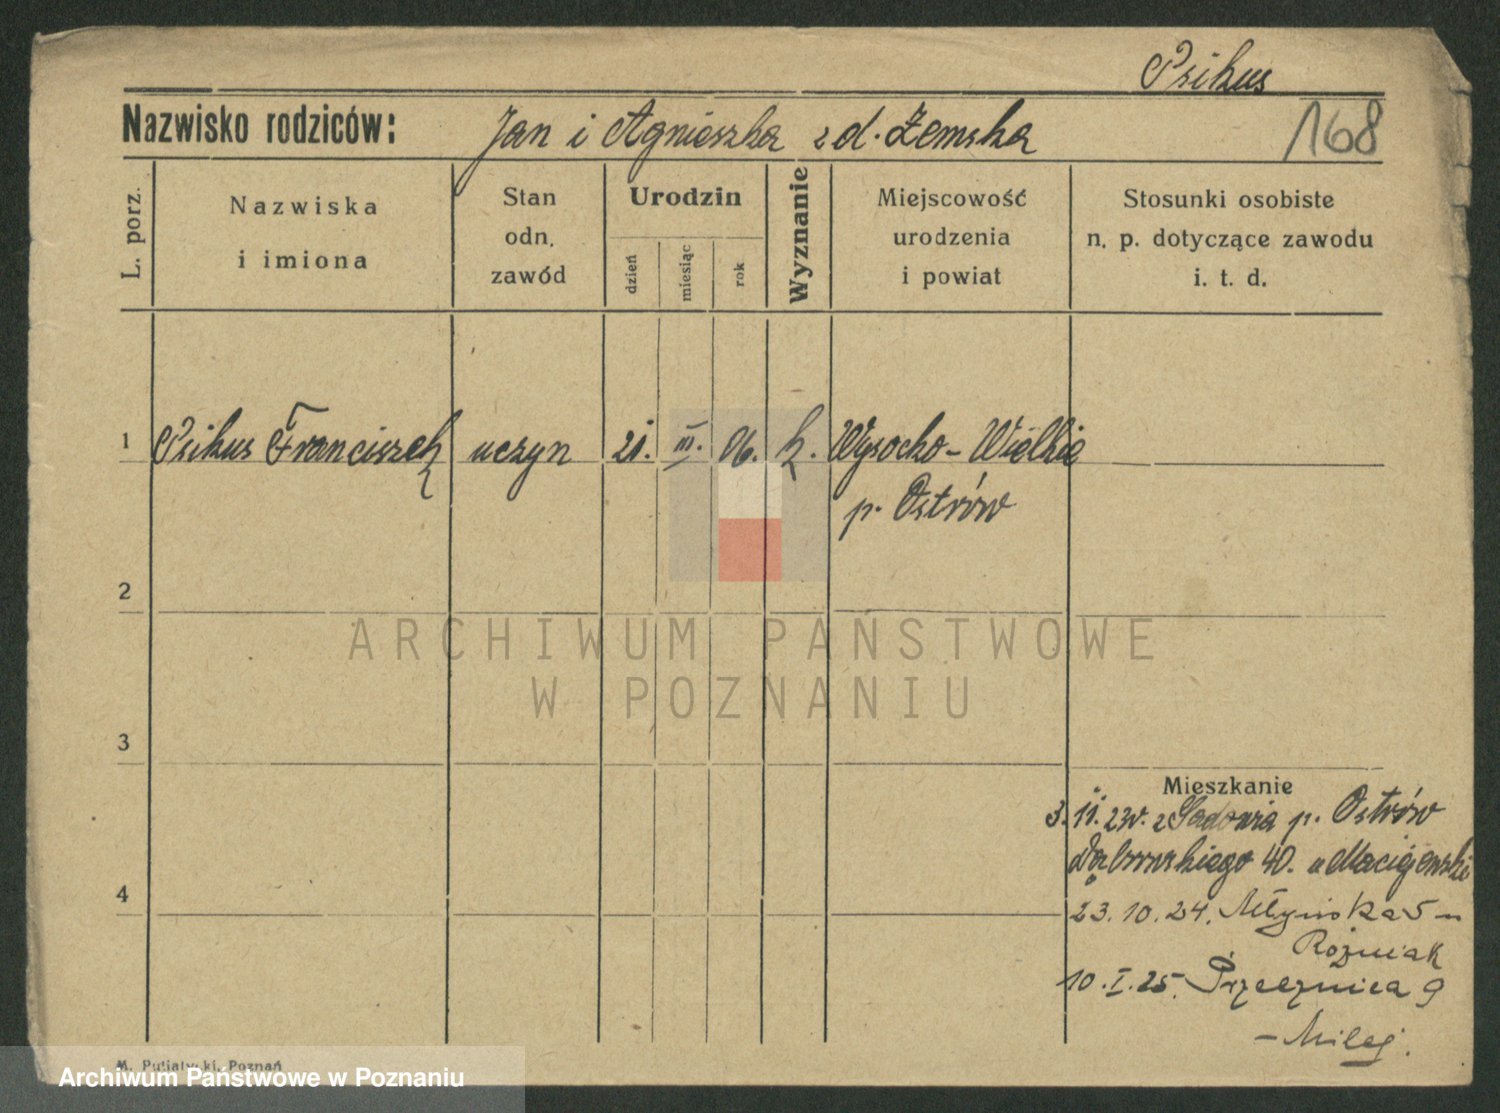 Psikus
Nazwisko rodziców: Jan i Agnieszka z d. Żemska
168
L. porz.
Nazwiska
i imiona
Stan
odn.
zawód
Urodzin
dzień
miesiąc
rok
Wyznanie
Miejscowość
urodzenia
i powiat
Stosunki osobiste
n. p. dotyczące zawodu
i. t. d.
1 Psikus Franciszek uczyn 21. III. 06. k. Wysocko-Wielkie
p. Ostrów
2
ARCHIWUM PAŃSTWOWE
W POZNANIU
3
Mieszkanie
3. 11. 23r. z Sadowia p. Ostrów
4
Dąbrowskiego 40. u Maciejewski
23. 10. 24. Młyńska 5 u
Rożniak
10. I. 25. Przecznica 9
- Milej.
M. Putiatycki, Poznań
Archiwum Państwowe w Poznaniu